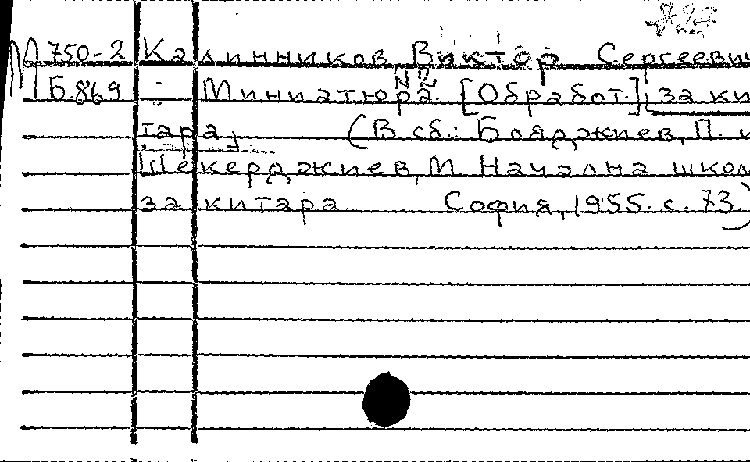 М 750-2 Калинников, Виктор Сергеевич
Б.869 Миниатюра №2. [Обработ.] за ки-
тара. (В сб.: Бояджиев, П. и
Шекерджиев, М. Начална школ
за китара София, 1955. с. 73)